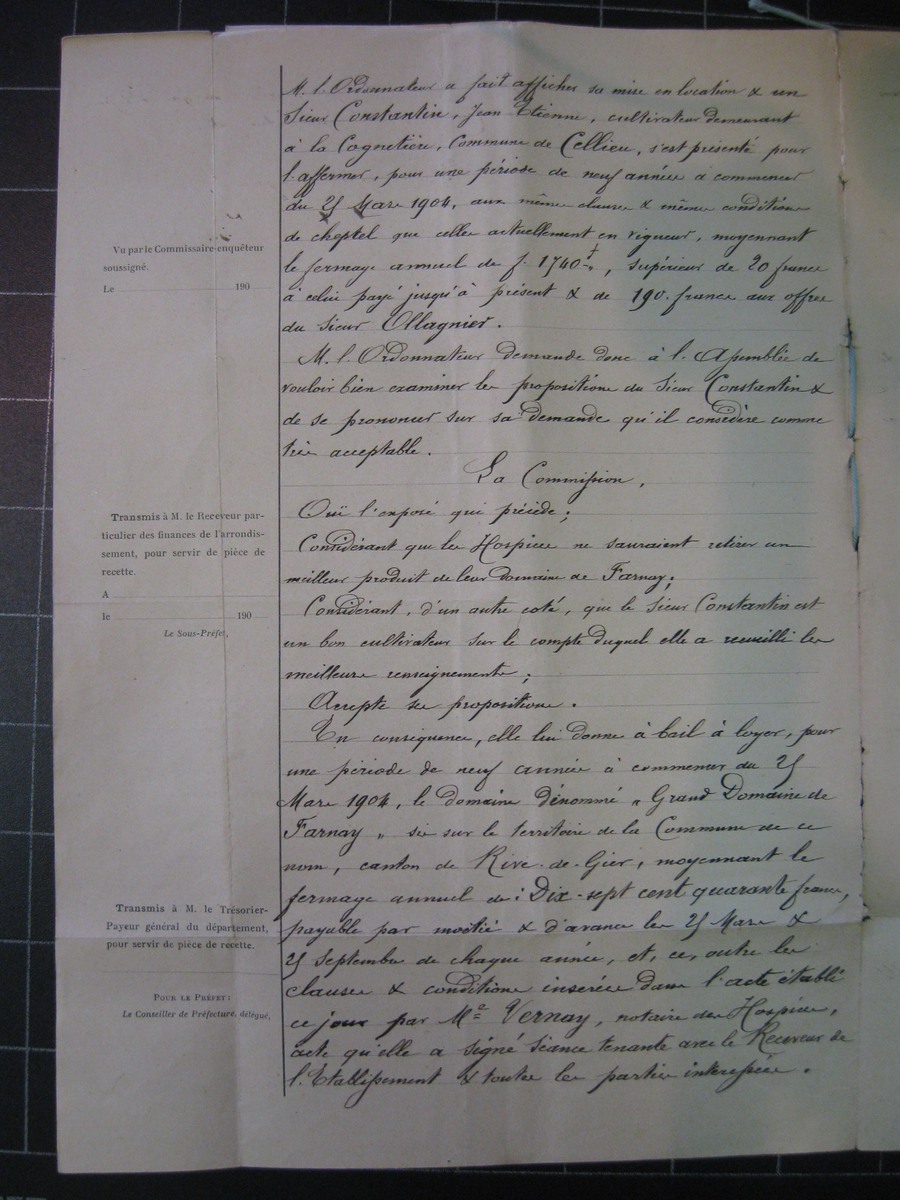 M. l'Ordonnateur a fait afficher sa mise en location & un
Sieur Constantin, Jean Etienne, cultivateur demeurant
à la Cognetière, Commune de Cellieu, s'est présenté pour
l'affermer, pour une période de neuf années à commencer
du 25 Mars 1904, aux mêmes clauses & mêmes conditions
de cheptel que celles actuellement en vigueur, moyennant
le fermage annuel de f. 1740, supérieur de 20 francs
à celui payé jusqu'à présent & de 190 francs aux offres
du Sieur Ollagnier.
M. l'Ordonnateur demande donc à l'Assemblée de
vouloir bien examiner les propositions du Sieur Constantin &
de se prononcer sur sa demande qu'il considère comme
très acceptable.
La Commission,
Ouï l'exposé qui précède;
Considérant que les Hospices ne sauraient retirer un
meilleur produit de leur domaine de Farnay;
Considérant, d'un autre coté, que le Sieur Constantin est
un bon cultivateur sur le compte duquel elle a recueilli les
meilleurs renseignements;
Accepte ses propositions.
En conséquence, elle lui donne à bail à loyer, pour
une période de neuf années à commencer du 25
Mars 1904, le domaine dénommé "Grand Domaine de
Farnay" sis sur le territoire de la Commune de ce
nom, canton de Rive-de-Gier, moyennant le
fermage annuel de: Dix-sept cent quarante francs,
payable par moitié & d'avance les 25 Mars &
25 Septembre de chaque année, et, ce, outre les
clauses & conditions insérées dans l'acte établi
ce jour par Me Vernay, notaire des Hospices,
acte qu'elle a signé séance tenante avec le Receveur de
l'Etablissement & toutes les parties intéressées.
Vu par le Commissaire-enquêteur
soussigné.
Le 190
Transmis à M. le Receveur par-
ticulier des finances de l'arrondis-
sement, pour servir de pièce de
recette.
A
le 190
Le Sous-Préfet,
Transmis à M. le Trésorier-
Payeur général du département,
pour servir de pièce de recette.
POUR LE PRÉFET:
Le Conseiller de Préfecture, délégué,